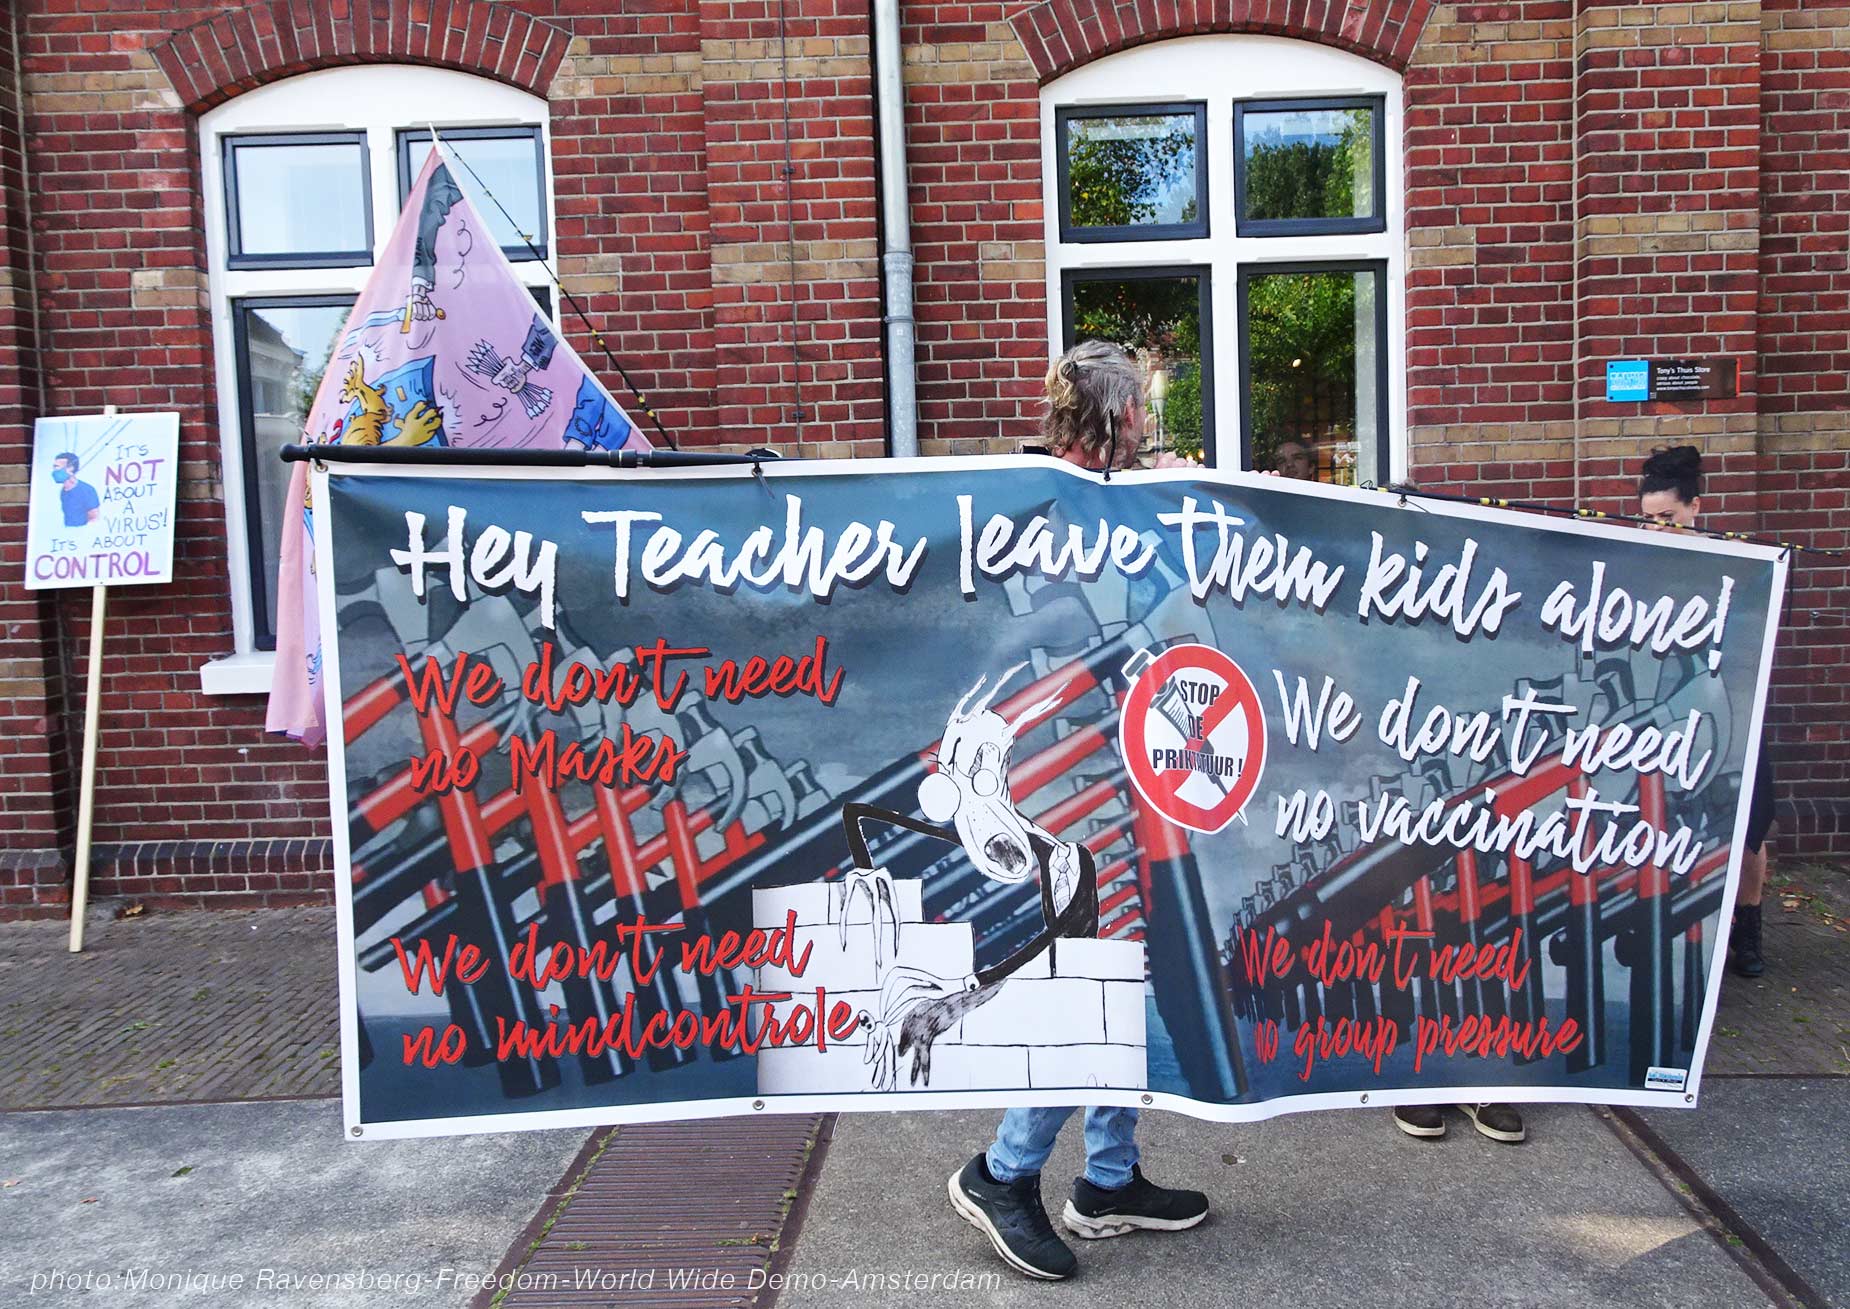 IT'S
NOT
ABOUT
A
'VIRUS'!
IT'S ABOUT
CONTROL
Tony's Thuis Store
crazy about chocolate,
serious about people
Hey Teacher leave them kids alone!
We don't need
no Masks
STOP
DE
PRIKTATUUR!
We don't need
no vaccination
We don't need
no mindcontrole
We don't need
no group pressure
photo:Monique Ravensberg-Freedom-World Wide Demo-Amsterdam